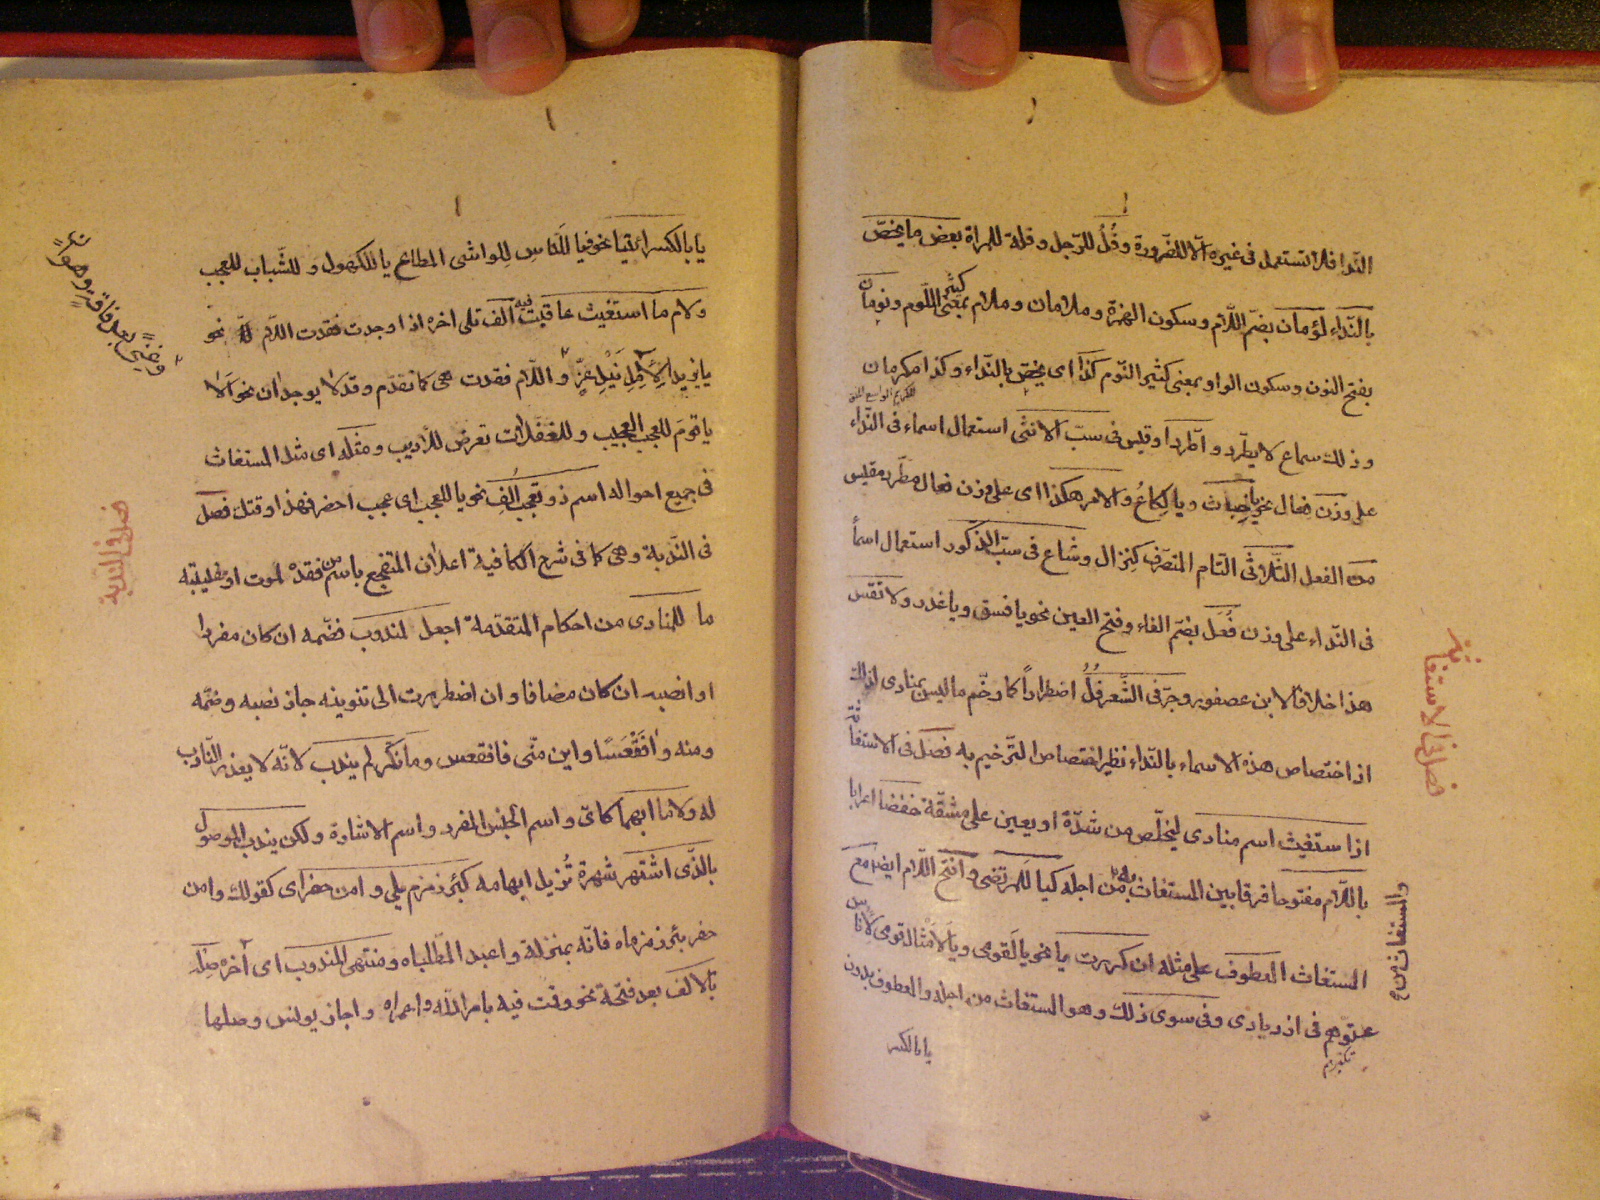 النّدا فلا تستعمل فى غيره الّا للضّرورة وفُلُ للرّجل وفلة للمراة بعض ما يخصّ
بالنّداء لؤمان بضمّ اللّام وسكون الهمزة وملامان وملام بمعنى كثير اللّوم ونومان
بفتح النون وسكون الواو بمعنى كثير النّوم كذا اى يختصّ بالنّداء وكذا مكرمان
للكريم الواسع الخلق
وذلك سماع لا يطّرد واطّردا وقيس فى سبّ الانثى استعمال اسماء فى النّداء
على وزن فعال نحو يا خباث ويا لكاعُ والامر هكذا اى على وزن فعال مطّرد مقيس
من الفعل الثّلاثى التّام المتصّرف كنزال وشاع فى سبّ الذّكور استعمال اسمأ
فى النّداء على وزن فُعَل بضمّ الفاء وفتح العين نحو يا فسق ويا غدر ولا تقس
هذا خلافًا لابن عصفور وجرّ فى الشّعر فُلُ اضطراراً كما رخّم ما ليس بمنادى اذلك
اذ اختصاص هذه الاسماء بالنّداء نظير اختصاص التّرخيم به فصل فى الاستغاثة
اذا ستغيث اسم منادى ليخلّص من شدّة او يعين على مشقّة خفضا اعرابا
باللّام مفتوحا فرقا بين المستغاث به من اجله كيا للمرتضى وافتح اللّام ايضا مع
المستغاث المعطوف على مثله ان كررت يا نحو يا لقومى ويا لامثال قومى لاناس
عتوّهم فى ازدياد وفى سوى ذلك وهو المستغاث من اجله والمعطوف بدون
تكبرهم
يا بالكسر
فصل فى الاستغاثة
والمستغاث من
يا بالكسر ائتيا نحو فيا للنّاسِ لِلواشى المطاع يا للكهول وللشّباب للعجب
ولام ما استغيث عاقبت فيه الف تلى اخره اذا وجدت فقدت اللّام نحو
يا يزيدا لِآمِلٍ نَيْلِ عِزٍّ واللّام فقدت هى كما تقدّم وقد لا يوجدان نحو الا
يا قوم للعجب العجيب وللغفلات تعرض للأديب ومثله اى مثل المستغاث
فى جميع احواله اسم ذو تعجّب اُلِف نحو يا للعجب اى عجب احضر فهذا وقتك فصل
فى النّدبة وهى كما فى شرح الكافية اعلان المتفجع باسم من فقده لموت او غيبته
ما للمنادى من احكام المتقدّمة اجعل لمندوب فضّمه ان كان مفردا
او انصبه ان كان مضافا وان اضطررت الى تنوينه جاز نصبه وضمّه
ومنه وافَقْعَسًا واين منّى فافقعس وما نكّر لم يندب لانّه لا يعذر النّادب
له ولا ما ابهما كاىّ واسم الجنس المفرد واسم الاشارة ولكن يندب الموصول
بالّذى اشتهر شهرة تُزيل ابهامه كبئر زمزم يلى وامن حفر اى كقولك وامن
حفر بئر زمزماه فانّه بمنزلة واعبد المطّلباه ومنتهى المندوب اى آخره صِلْه
بالالف بعد فتحة نحو وقمت فيه بامر اللّه يا عمراه واجاز يونس وصلها
فصل فى الندبة
وغنًى بعد فاقةٍ وهوانٍ